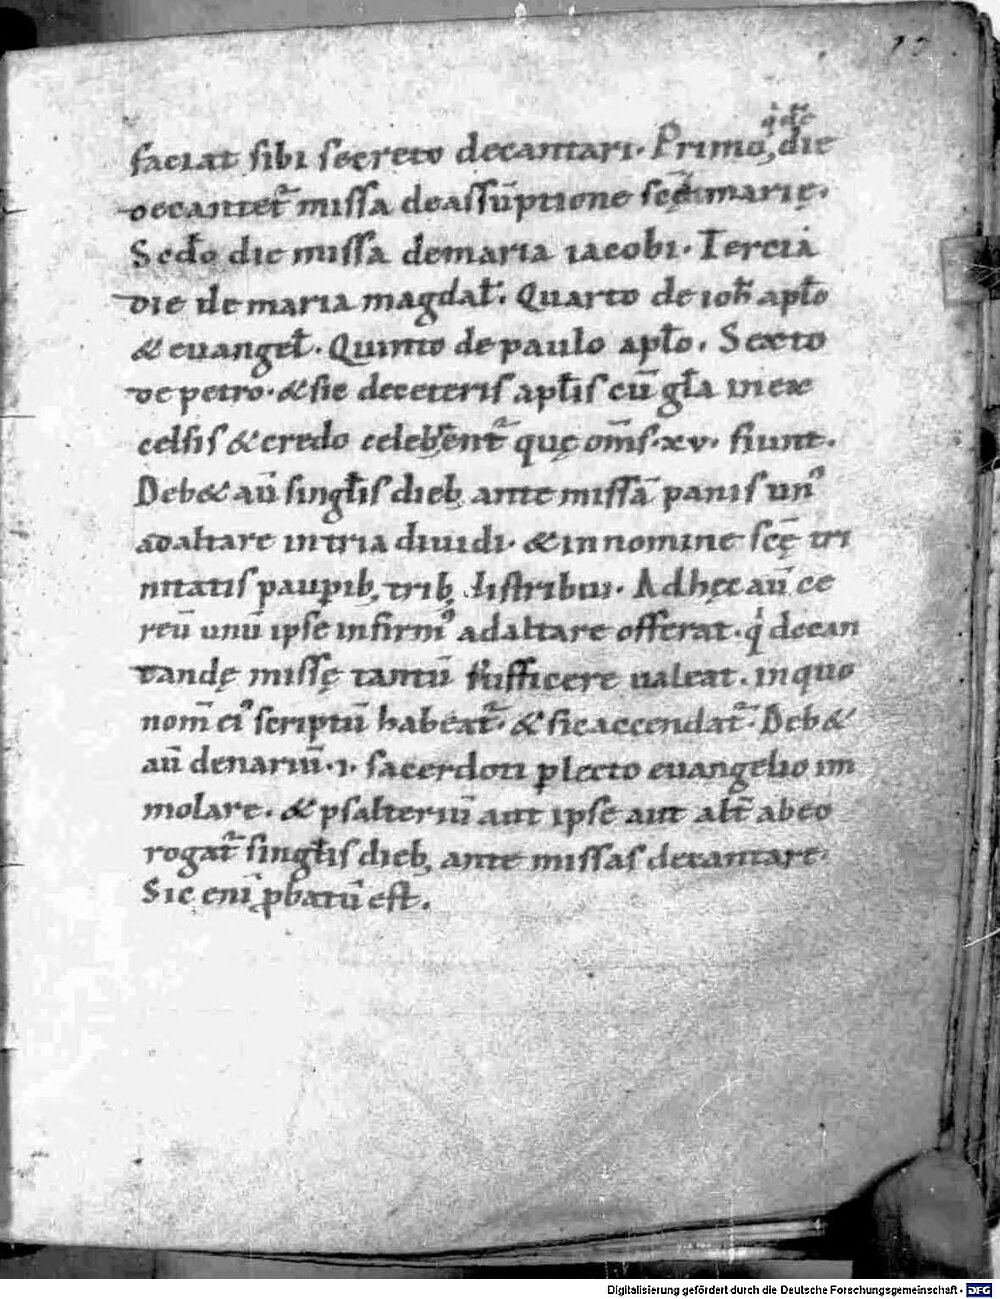 faciat sibi secreto decantari. Primo die
decantet᷑ missa deassūptione scę marię.
Scdo die missa demaria iacobi. Tercia
die de maria magdał. Quarto de ioħ apło
& euangeł. Quinto depaulo apło. Sexto
de petro. &sic deceteris apłis cū gła inex
celsis & credo celebrent᷑ quę om̄s .xv. fiunt.
Deb& aū singłis dieb; ante missā panis un᷒
adaltare intria diuidi. &innomine scę̄ tri
nitatis paupib; trib; distribui. Adhęc aū ce
reū unū ipse infirm᷒ adaltare offerat. qͥ decan
tandę missę tantū sufficere ualeat. inquo
nom̄ ei᷒ scriptū habeat᷑. & sicaccendat᷑. Deb&
aū denariū .i. sacerdoti plecto euangelio im
molare. & psalteriū aut ipse aut alt̄ abeo
rogat᷒ singłis dieb; ante missas decantare.
Sic enī pbatū est.
Digitalisierung gefördert durch die Deutsche Forschungsgemeinschaft - DFG